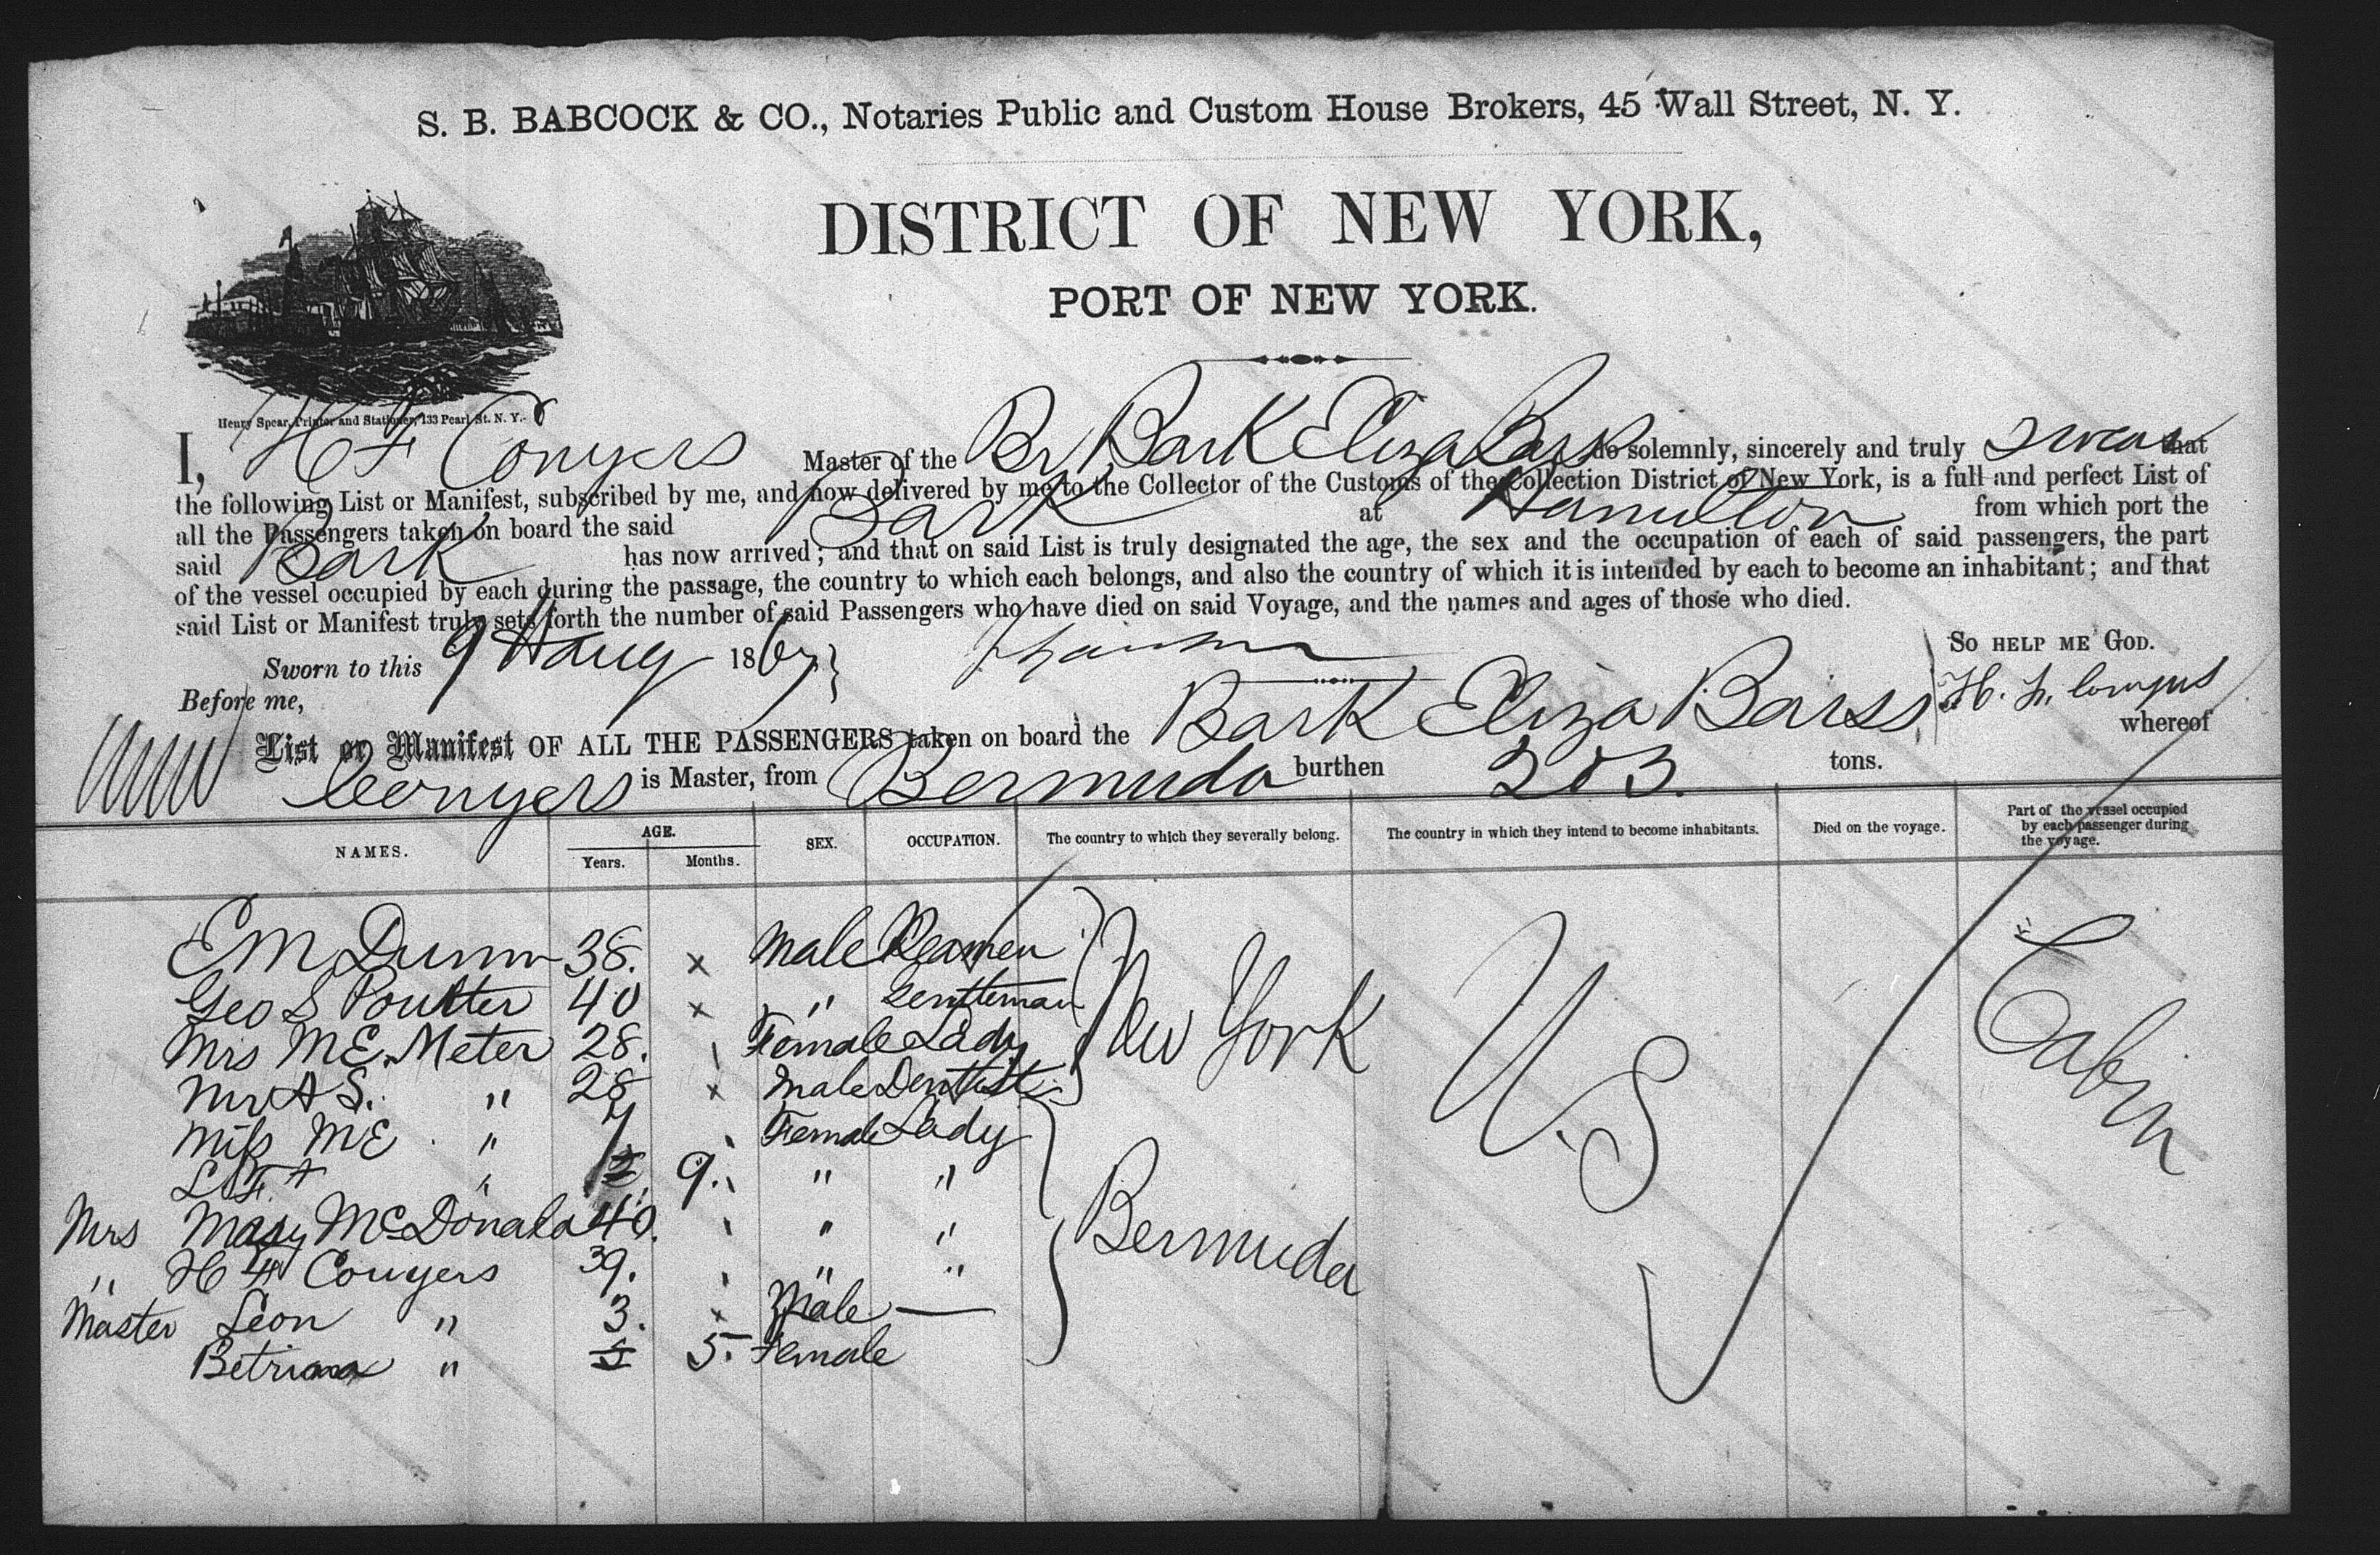 S. B. BABCOCK & CO., Notaries Public and Custom House Brokers, 45 Wall Street, N. Y.
DISTRICT OF NEW YORK,
PORT OF NEW YORK.
Henry Spear, Printer and Stationer, 133 Pearl St. N. Y.
I, H F Conyers Master of the Br Bark Eliza Barss do solemnly, sincerely and truly swear that
the following List or Manifest, subscribed by me, and now delivered by me to the Collector of the Customs of the Collection District of New York, is a full and perfect List of
all the Passengers taken on board the said Bark at Hamilton from which port the
said Bark has now arrived; and that on said List is truly designated the age, the sex and the occupation of each of said passengers, the part
of the vessel occupied by each during the passage, the country to which each belongs, and also the country of which it is intended by each to become an inhabitant; and that
said List or Manifest truly sets forth the number of said Passengers who have died on said Voyage, and the names and ages of those who died.
So HELP ME GOD.
Sworn to this 9th Aug 1867
H. F. Conyers
Before me,
List or Manifest OF ALL THE PASSENGERS taken on board the Bark Eliza Barss whereof
Conyers is Master, from Bermuda burthen 203. tons.
NAMES. AGE. Years. Months. SEX. OCCUPATION. The country to which they severally belong. The country in which they intend to become inhabitants. Died on the voyage. Part of the vessel occupied by each passenger during the voyage.
E M Dunn 38. x Male
Geo S Poulter 40 x " Gentleman
Mrs M E. Meter 28. Female Lady New York U.S Cabin
Mr A S. " 28 x Male Dentist
Miss M E " Female Lady
" 9. " "
Mrs Mary McDonald 40. " "
" H F Conyers 39. " " Bermuda
Master Leon " 3. x Male —
" 5. Female